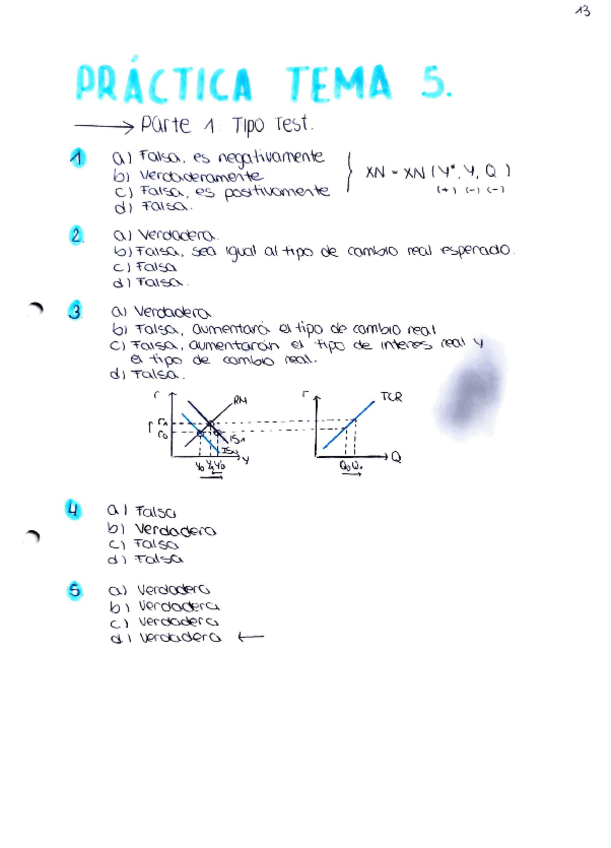 13
PRÁCTICA TEMA 5.
Parte 1. TIPO Test.
1 a) Falsa, es negativamente
b) Verdaderamente
c) Falsa, es positivamente
d) Falsa.
XN = XN (Y*, Y, Q)
(+) (-) (-)
2. a) Verdadera.
b) Falsa, sea igual al tipo de cambio real esperado.
c) Falsa
d) Falsa.
3 a) Verdadera
b) Falsa, aumentará el tipo de cambio real
c) Falsa, aumentarán el tipo de interés real y
el tipo de cambio real.
d) Falsa.
r RM
r1
r0
IS1
Y
r TCR
Q
4 a) Falsa
b) Verdadera
c) Falsa
d) Falsa
5. a) Verdadera
b) Verdadera
c) Verdadera
d) Verdadera ←